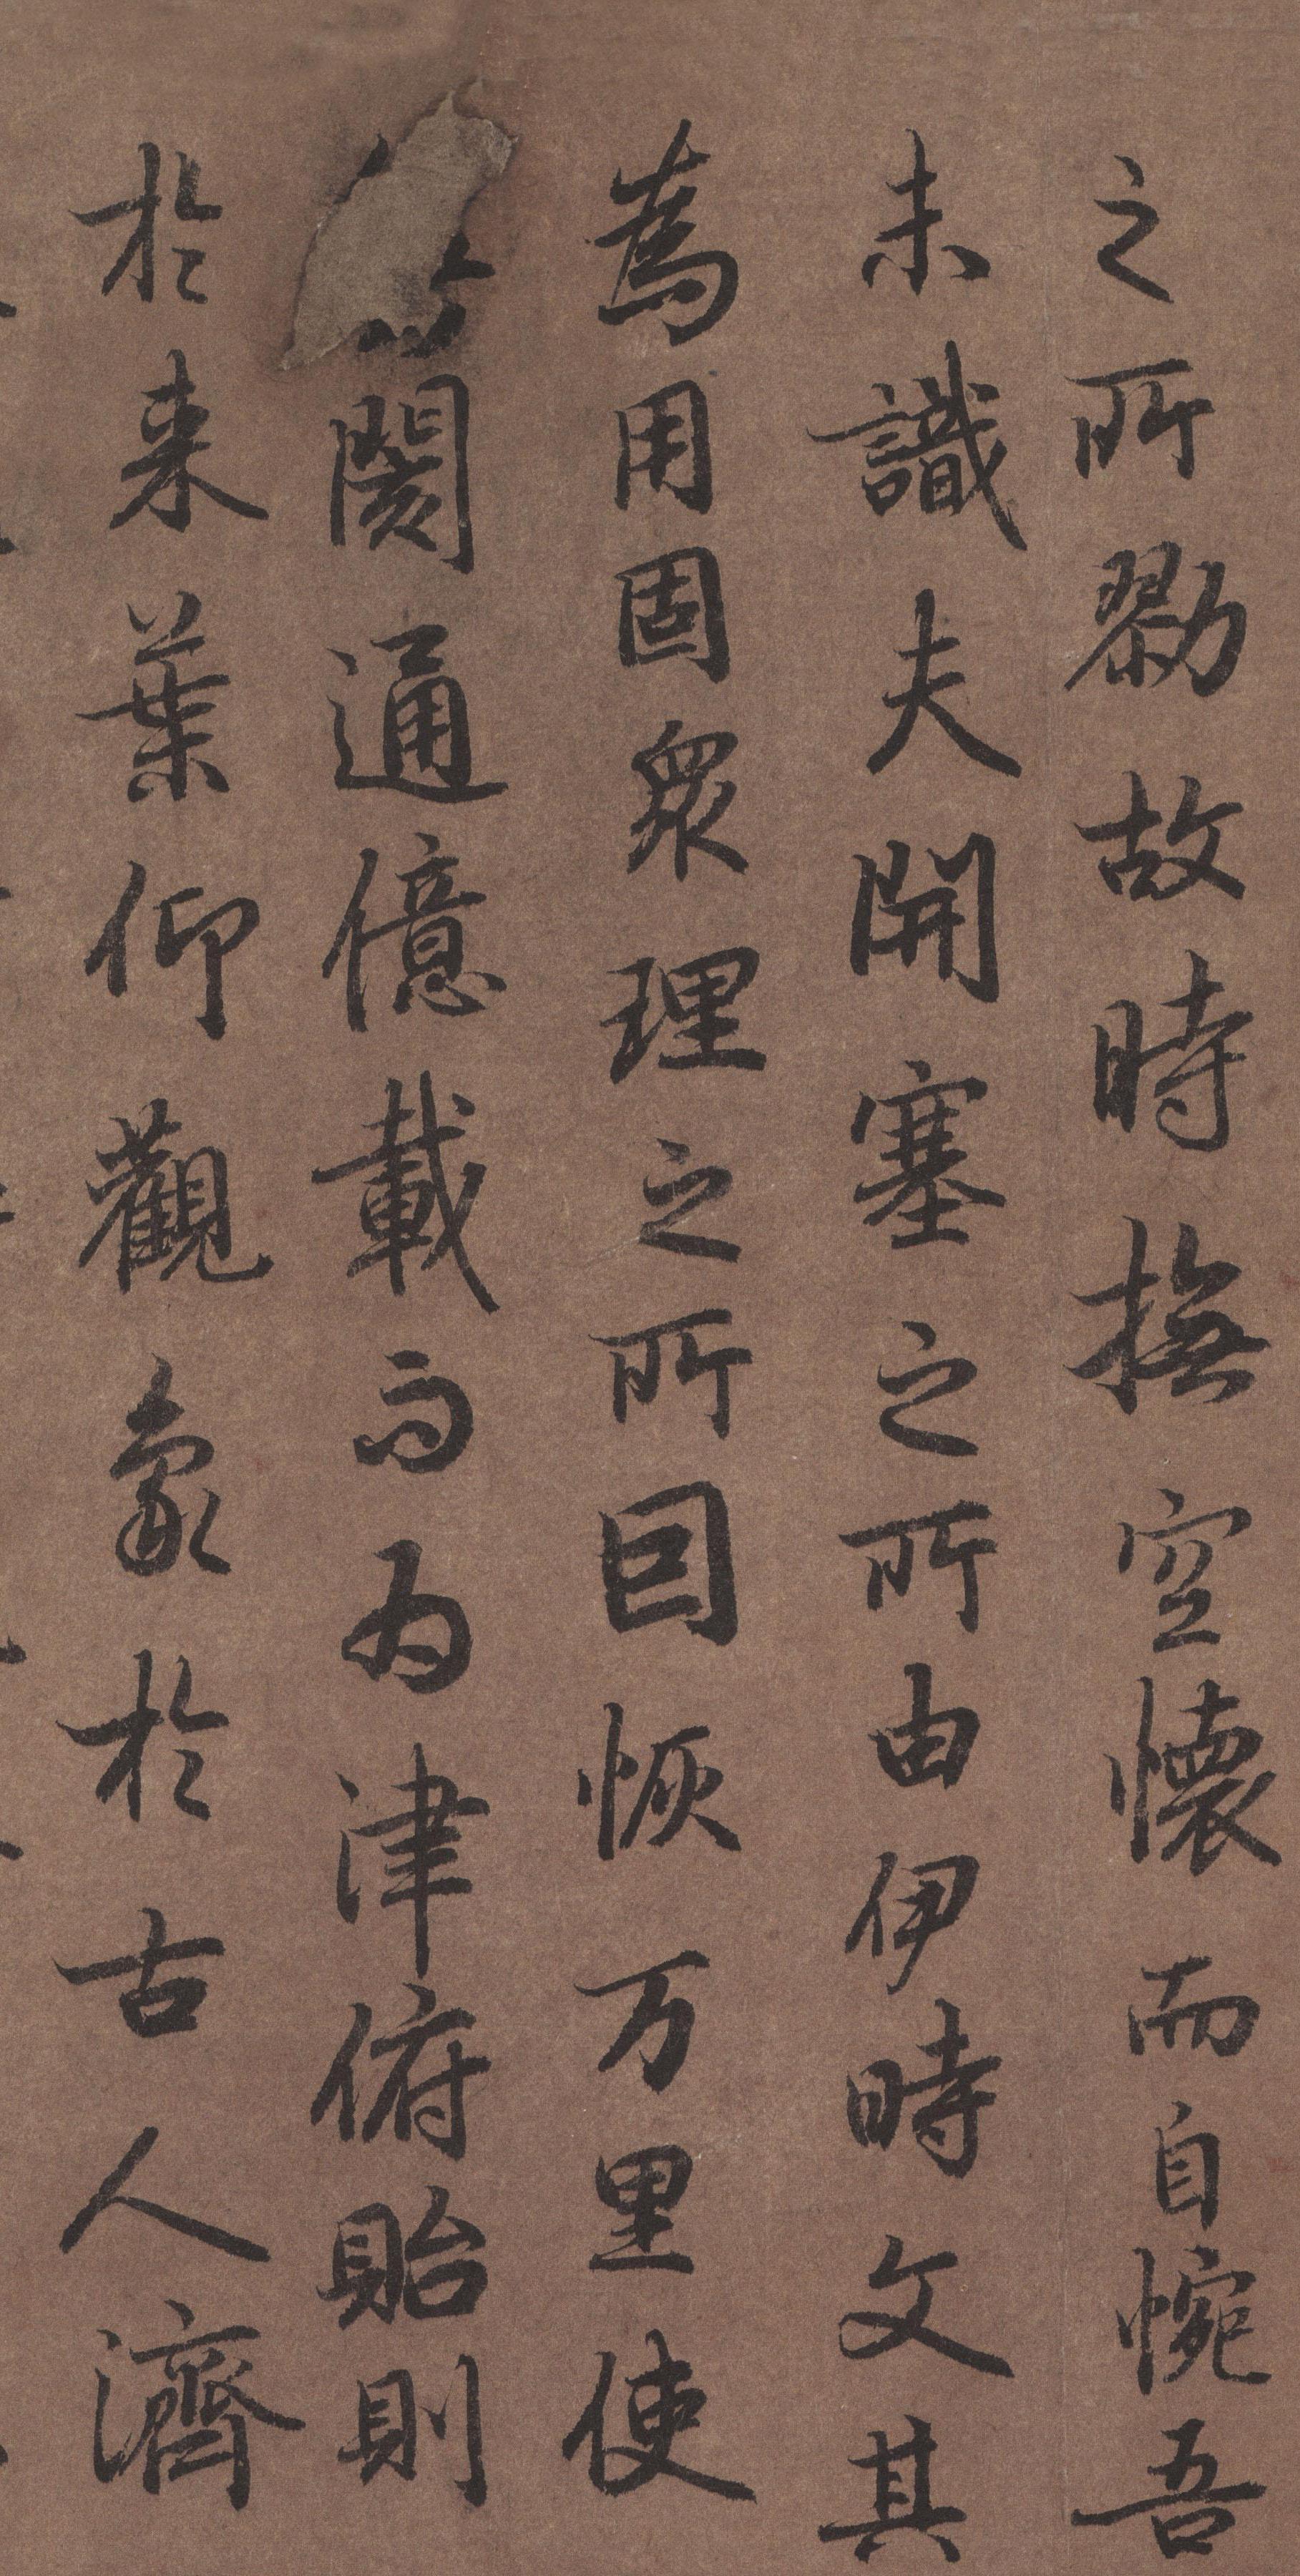 之所勠故時撫空懷而自惋吾
未識夫開塞之所由伊時文其
為用固眾理之所因恢万里使
閡通億載而為津俯貽則
於来葉仰觀象於古人濟